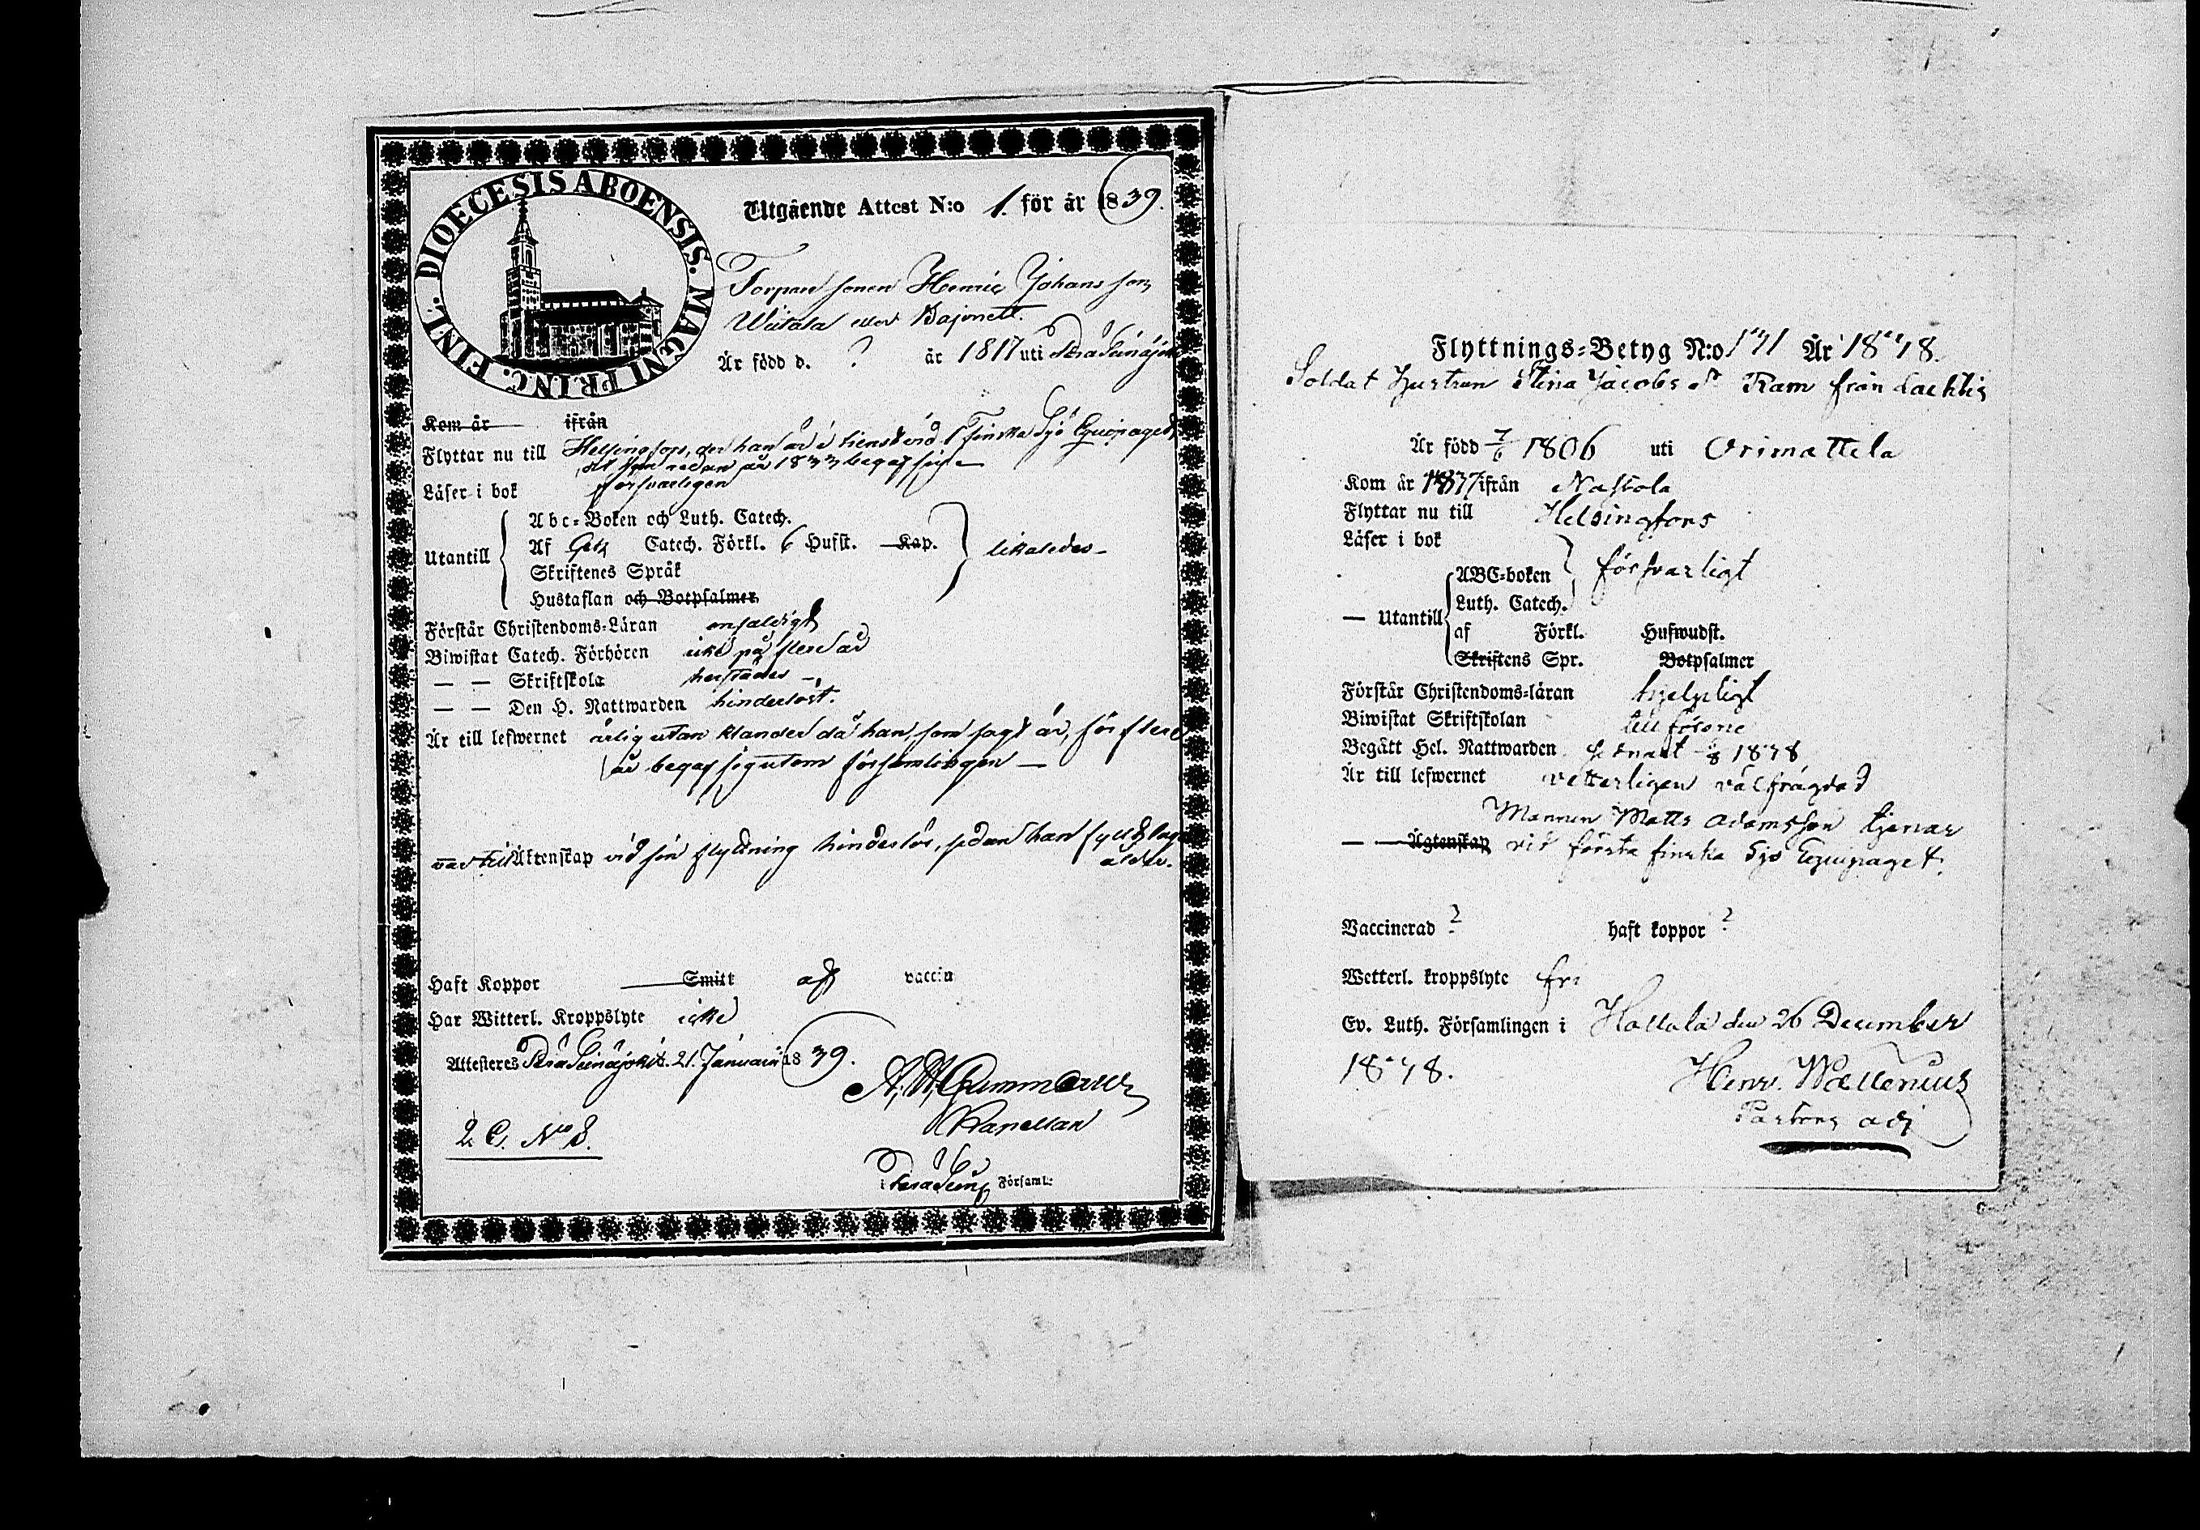 DIOECESIS ABOENSIS. MAGNI PRINC. FINL.
Utgående Attest N:o 1. för år 1839.
Torpare sonen Henric Johansson
Wiitala eller Bajonett.
Är född d. ? år 1817 uti Peräseinäjoki
Kom år ifrån
Flyttar nu till Helsingfors, der han är i tienst vid 1 Finska Sjö Equipaget,
dit han redan år 1833 begaf sig
Läser i bok försvarligen
Abc-Boken och Luth. Catech.
Utantill Af Catech. Förkl. 6 Hufst. Kap. likaledes
Skriftenes Språk
Hustaflan och Botpsalmer
Förstår Christendoms-Läran enfaldigt
Biwistat Catech. Förhören icke på flere år
— — Skriftskola härstädes
— — Den H. Nattwarden hinderlöst.
Är till lefwernet ärlig utan klander då han som sagt är, för flere
år begaf sig utom församlingen
Äktenskap vid sin flyttning hinderlös, sedan han fyllt laga
ålder.
Haft Koppor Smitt af vaccin
Har Witterl. Kroppslyte icke
Attesteres Peräseinäjoki d. 21. Januarii 1839.
Kapellan
2 C. No 8.
i Peräsein Församl:
Flyttnings-Betyg N:o 171 År 1838.
Soldat Hustrun Stina Jacobs dr Ram från Lachtis
Är född 7/6 1806 uti Orimattila
Kom år 1837 ifrån Nastola
Flyttar nu till Helsingfors
Läser i bok
ABC-boken försvarligt
Luth. Catech.
— Utantill af Förkl. Hufwudst.
Skriftens Spr. Botpsalmer
Förstår Christendoms-läran hjelpligt
Biwistat Skriftskolan
Begått Hel. Nattwarden senast 1838
Är till lefwernet vetterligen välfrägdad
Mannen Matts Adamsson tjenar
— — Ägtenskap vid första finska Sjö Equipaget.
Vaccinerad ? haft koppor ?
Wetterl. kroppslyte fri
Ev. Luth. Församlingen i Hollola den 26 December
1838.
Henr. Wællenius
Pastors adj